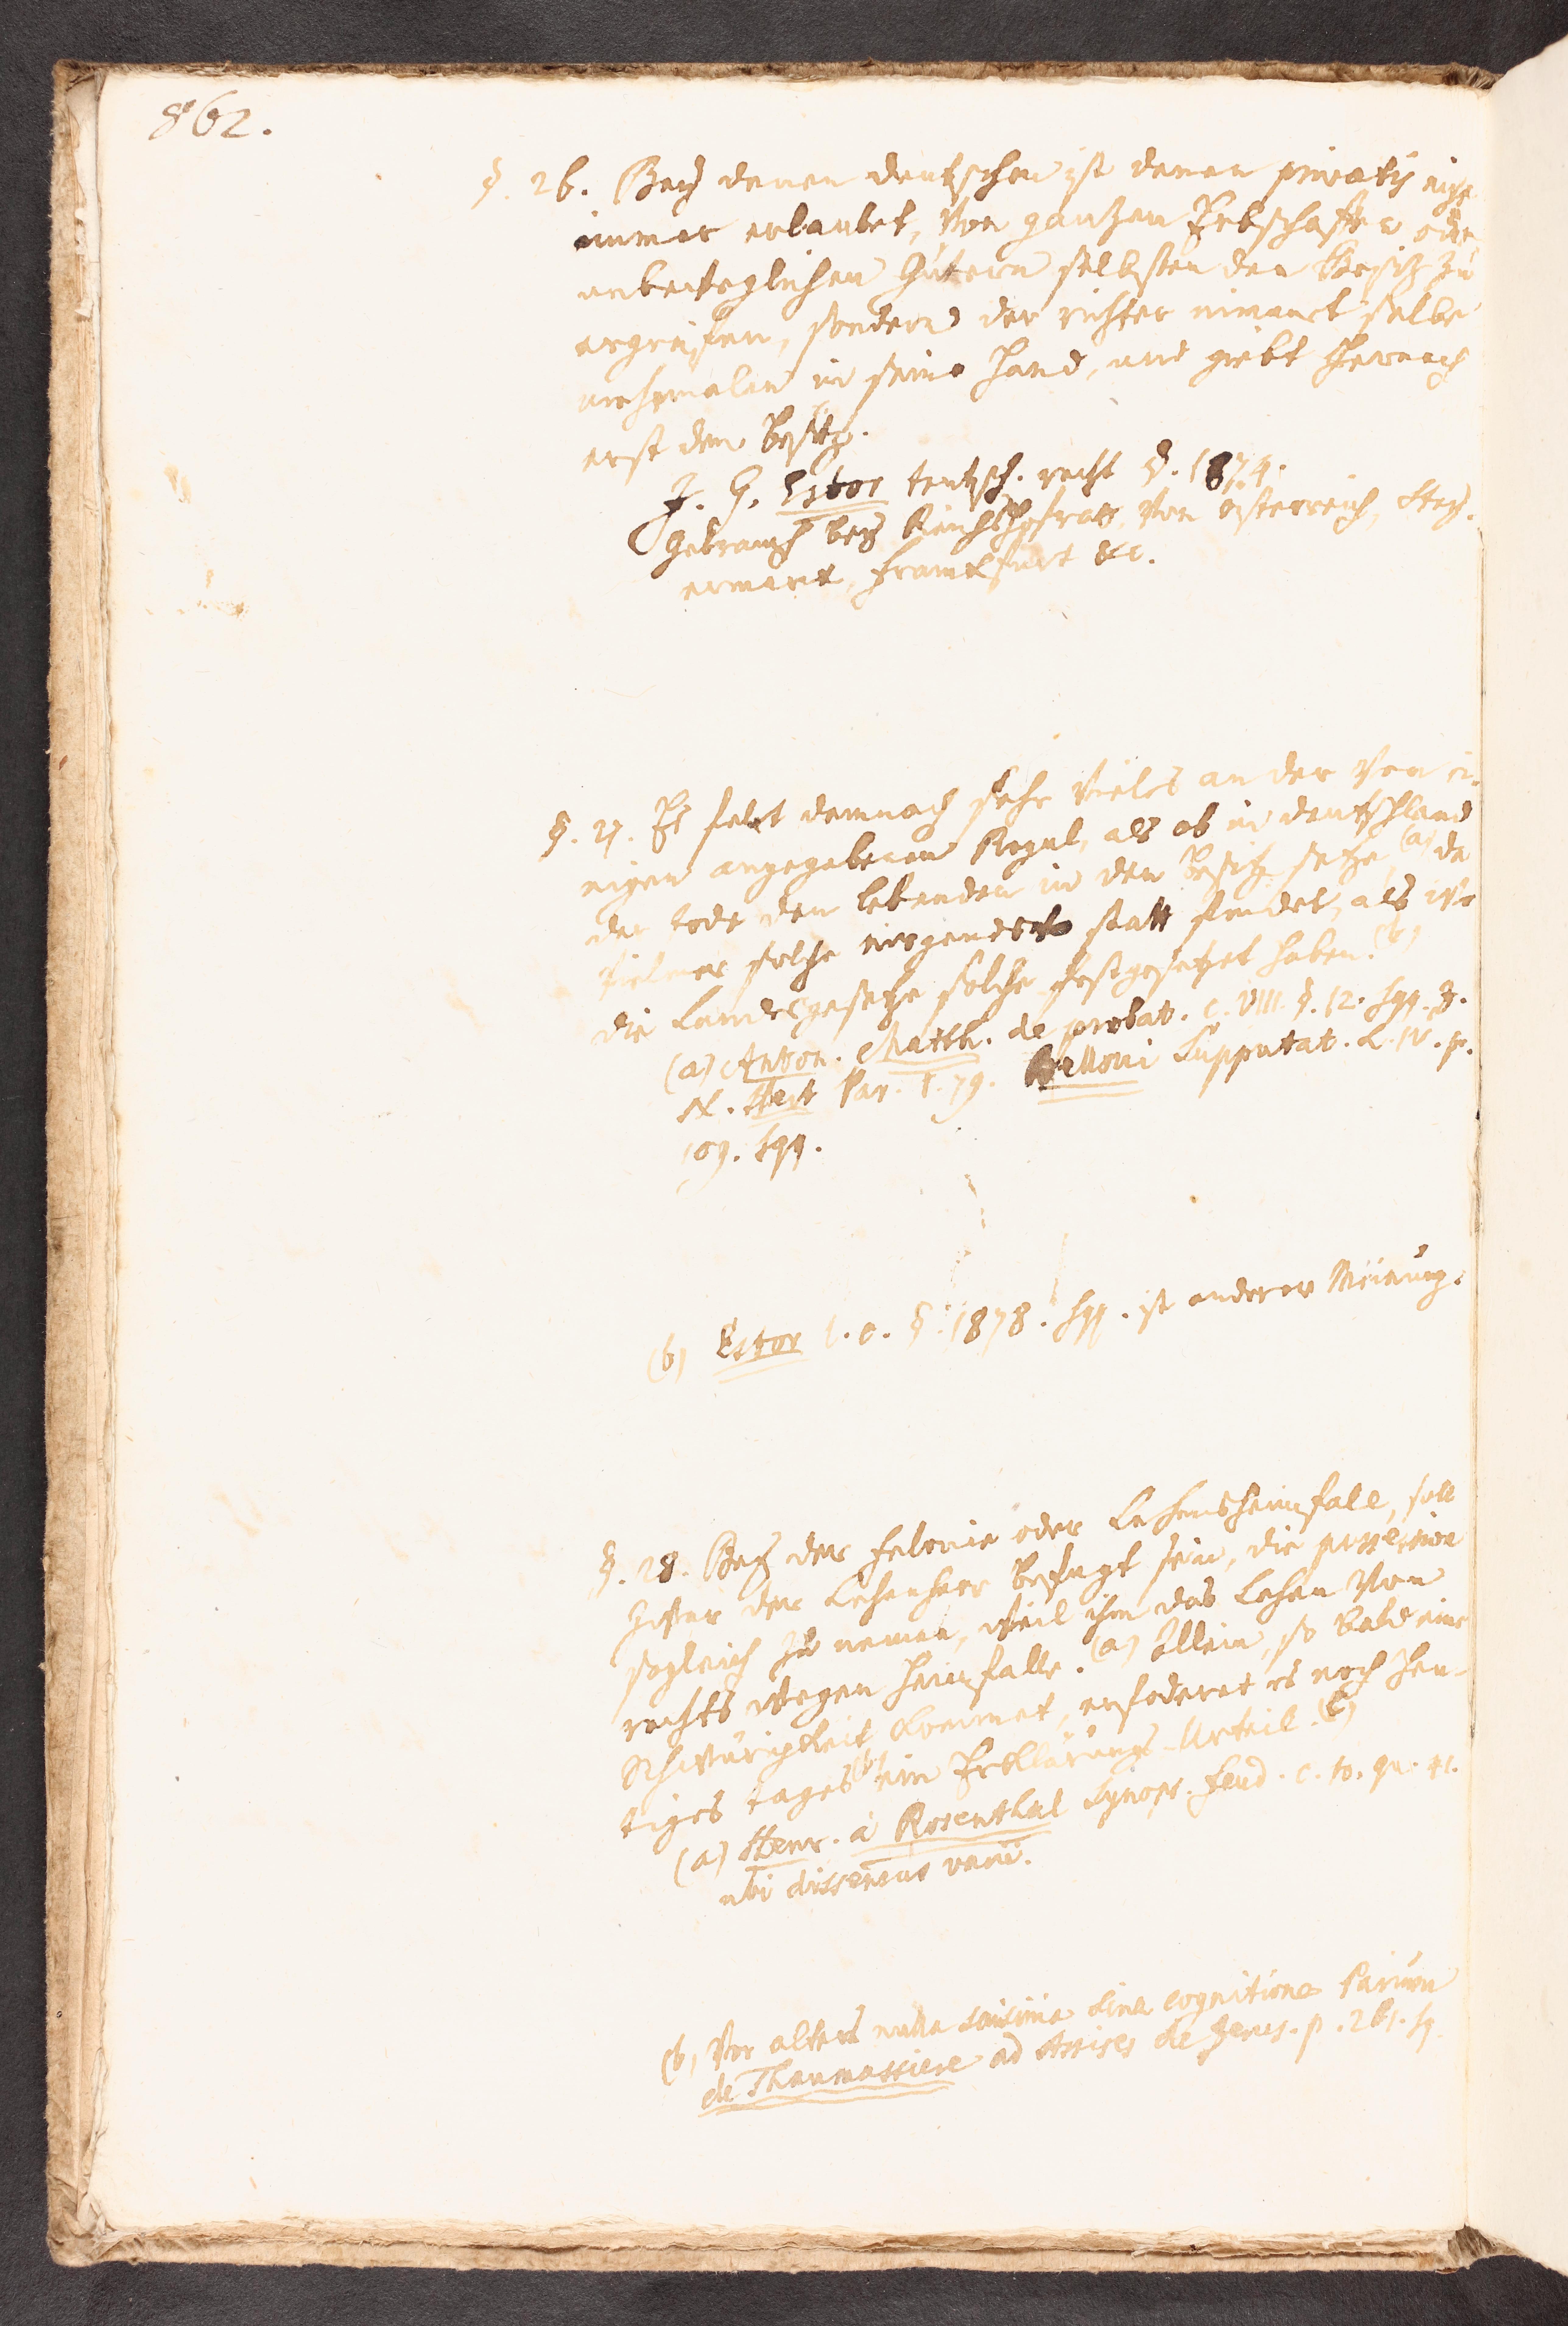 862.
§. 26. Bey denen deutschen ist denen privatis nicht
immer erlaubet, von gantzen Erbschafften oder
unbeweglichen Gütern selbsten den Besitz zu
ergreifen, sondern der richter nimmt selbe
mehrmalen in seine Hand, und giebt hernach
erst den Besitz.
J. G. Estor teutsch. recht §. 1874.
Gebrauch bey Reichshofrath, von Österreich, Stey-
ermark, Frankfurt &c.
§. 27. Es felet demnach sehr vieles an der von ei-
nigen angegebenen Regul, als ob in deutschland
der tode den lebenden in den Besitz setze, (a) da
vielmer solche nirgends statt findet, als wo
die Landesgesetze solche festgesetzet haben. (b)
(a) Anton. Matth. de probat. c. VIII. §. 12. sqq. J.
N. Hert Par. I. 79. Belloni Supputat. L. IV. p.
109. sqq.
(b) Estor l. c. §. 1878. sqq. ist anderer Meinung.
§. 28. Bey der felonie oder Lehensheimfall, soll
zwar der Lehenherr befugt sein, die possession
sogleich zu nemen, weil ihm das Lehen von
rechts wegen heimfalle. (a) Allein, so bald eine
Schwürigkeit vorkommet, erfoderet es noch heu-
tiges tages ein Erklärungs-Urteil. (b)
(a) Henr. à Rosenthal Synops. feud. c. 10. qu. 41.
ubi dissensus varii.
(b) Vor alters nulla saisina sine cognitione Parium
de Thaumassiere ad Assises de Jerus. p. 261. sq.